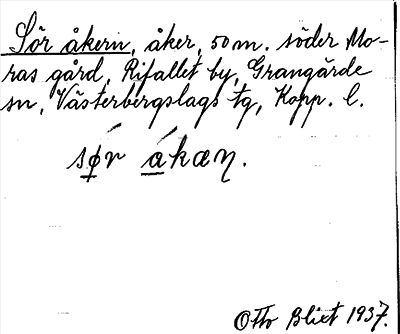 Sör åkern, åker, 50 m. söder Mo-
ras gård, Rifallet by, Grangärde
sn, Västerbergslags tg, Kopp. l.
sǿ̱r á̱kæɳ.
Otto Blixt 1937.